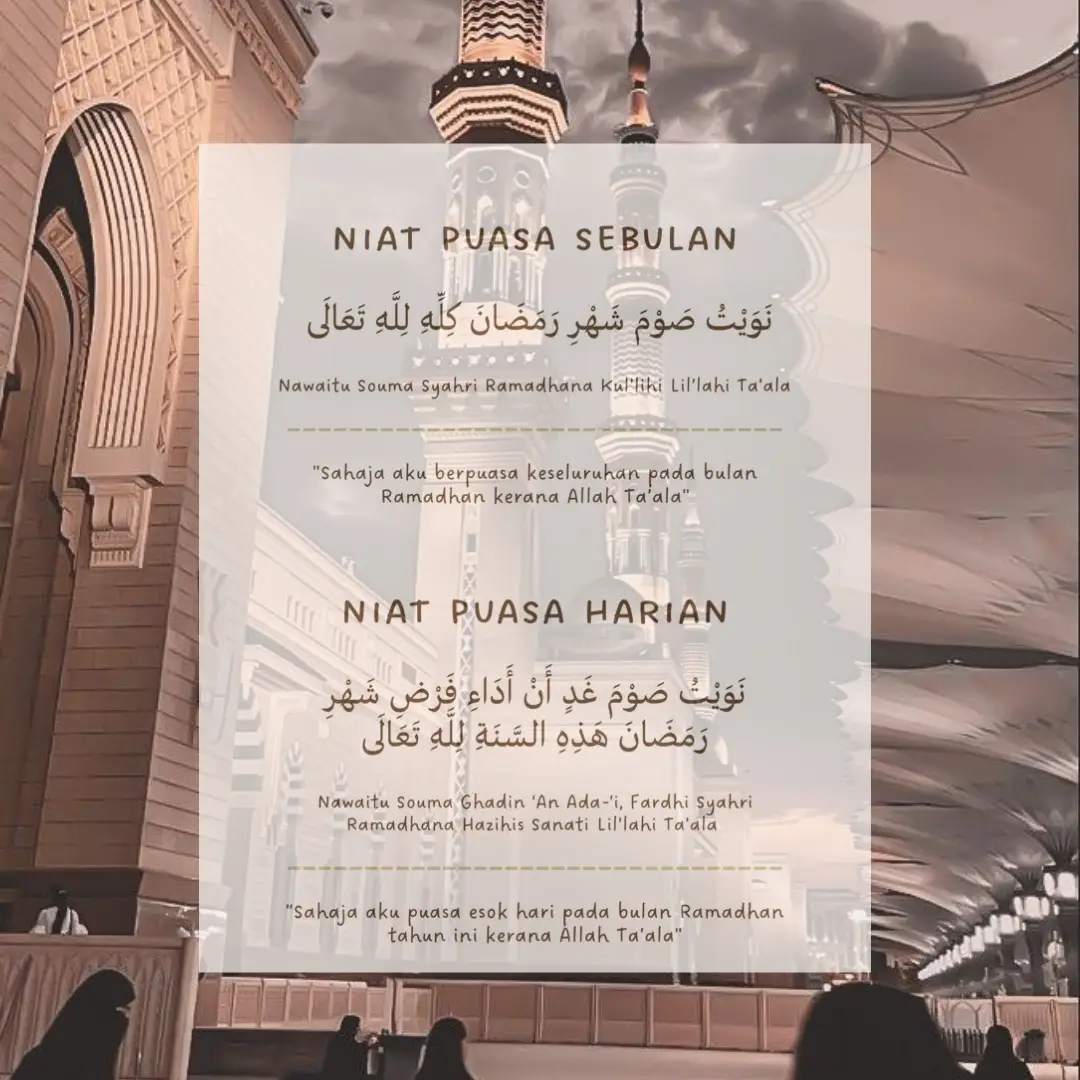 NIAT PUASA SEBULAN
نَوَيْتُ صَوْمَ شَهْرِ رَمَضَانَ كِلِّهِ لِلَّهِ تَعَالَى
Nawaitu Souma Syahri Ramadhana Kul'lihi Lil'lahi Ta'ala
"Sahaja aku berpuasa keseluruhan pada bulan
Ramadhan kerana Allah Ta'ala"
NIAT PUASA HARIAN
نَوَيْتُ صَوْمَ غَدٍ أَنْ أَدَاءِ فَرْضِ شَهْرِ
رَمَضَانَ هَذِهِ السَّنَةِ لِلَّهِ تَعَالَى
Nawaitu Souma Ghadin 'An Ada-'i, Fardhi Syahri
Ramadhana Hazihis Sanati Lil'lahi Ta'ala
"Sahaja aku puasa esok hari pada bulan Ramadhan
tahun ini kerana Allah Ta'ala"